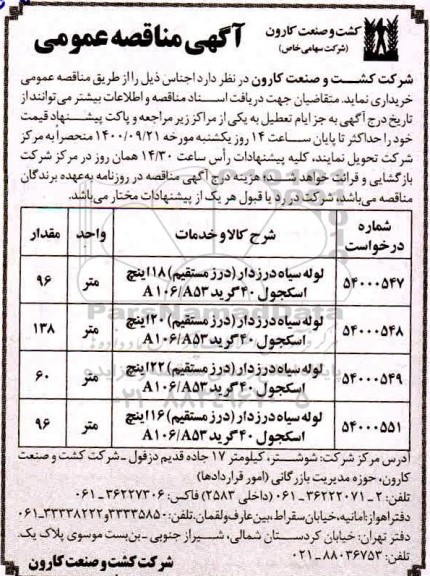 کشت و صنعت کارون
(شرکت سهامی خاص)
آگهی مناقصه عمومی
شرکت کشت و صنعت کارون در نظر دارد اجناس ذیل را از طریق مناقصه عمومی
خریداری نماید. متقاضیان جهت دریافت اسناد مناقصه و اطلاعات بیشتر می‌توانند از
تاریخ درج آگهی به جز ایام تعطیل به یکی از مراکز زیر مراجعه و پاکت پیشنهاد قیمت
خود را حداکثر تا پایان ساعت ۱۴ روز یکشنبه مورخه ۱۴۰۰/۰۹/۲۱ منحصراً به مرکز
شرکت تحویل نمایند، کلیه پیشنهادات رأس ساعت ۱۴/۳۰ همان روز در مرکز شرکت
بازگشایی و قرائت خواهد شد، هزینه درج آگهی مناقصه در روزنامه به عهده برندگان
مناقصه می‌باشد، شرکت در رد یا قبول هر یک از پیشنهادات مختار می‌باشد.
شماره درخواست شرح کالا و خدمات واحد مقدار
۵۴۰۰۰۵۴۷ لوله سیاه درز دار (درز مستقیم) ۱۸ اینچ متر ۹۶
اسکجول ۴۰ گرید A۱۰۶/A۵۳
۵۴۰۰۰۵۴۸ لوله سیاه درز دار (درز مستقیم) ۲۰ اینچ متر ۱۳۸
اسکجول ۴۰ گرید A۱۰۶/A۵۳
۵۴۰۰۰۵۴۹ لوله سیاه درز دار (درز مستقیم) ۲۲ اینچ متر ۶۰
اسکجول ۴۰ گرید A۱۰۶/A۵۳
۵۴۰۰۰۵۵۱ لوله سیاه درز دار (درز مستقیم) ۱۶ اینچ متر ۹۶
اسکجول ۴۰ گرید A۱۰۶/A۵۳
ParsNamadData
آدرس مرکز شرکت: شوشتر، کیلومتر ۱۷ جاده قدیم دزفول - شرکت کشت و صنعت
کارون، حوزه مدیریت بازرگانی (امور قراردادها)
تلفن: ۲-۳۶۲۲۲۰۷۱-۰۶۱ (داخلی ۲۵۸۳) فاکس: ۳۶۲۲۷۳۰۶-۰۶۱
دفتر اهواز: امانیه، خیابان سقراط، بین عارف و لقمان. تلفن: ۳۳۳۳۵۸۵۰ و ۳۳۳۳۸۲۲۲-۰۶۱
دفتر تهران: خیابان کردستان شمالی، شیراز جنوبی - بن‌بست موسوی پلاک یک.
تلفن: ۸۸۰۳۶۷۵۳-۰۲۱
شرکت کشت و صنعت کارون